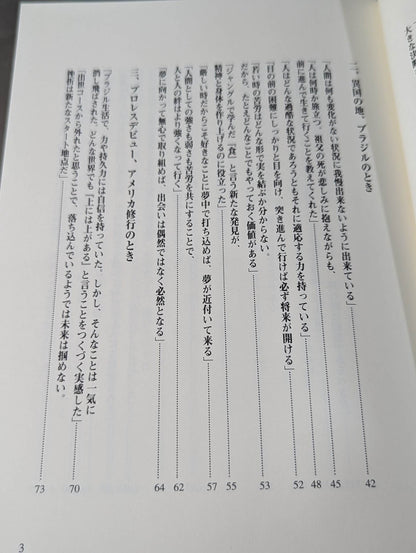 二、異国の地、ブラジルのとき
「人間は何も変化がない状況に我慢出来ないように出来ている」 42
「人は何時か旅立つ。祖父の死が悲しみに抱えながらも、
前に進んで生きて行くことを教えてくれた」 45
「人はどんな過酷な状況であろうともそれに適応する力を持っている」 48
「目の前の困難にしっかりと目を向け、突き進んで行けば必ず将来が開ける」 52
「若い時の苦労はどんな形で実を結ぶか分からない。
だから、たとえどんなことでもやっておく価値がある」 53
「ジャングルで学んだ『食』と言う新たな発見が、
精神と身体を作り上げるのに役立った」 55
「厳しい時だからこそ好きなことに夢中で打ち込めば、夢が近付いて来る」 57
「人間としての強さも弱さも苦労を共にすることで、
人と人の絆はより強くなって行く」 62
「夢に向かって無心で取り組めば、出会いは偶然ではなく必然となる」 64
三、プロレスデビュー、アメリカ修行のとき
「ブラジル生活で、力や持久力には自信を持っていた。しかし、そんなことは一気に
消し飛ばされた。どんな世界でも『上には上がある』と言うことをつくづく実感した」 70
「出世コースから外れたと思うことで、落ち込んでいるようでは未来は掴めない。
挫折は新たなスタート地点だ」 73
3